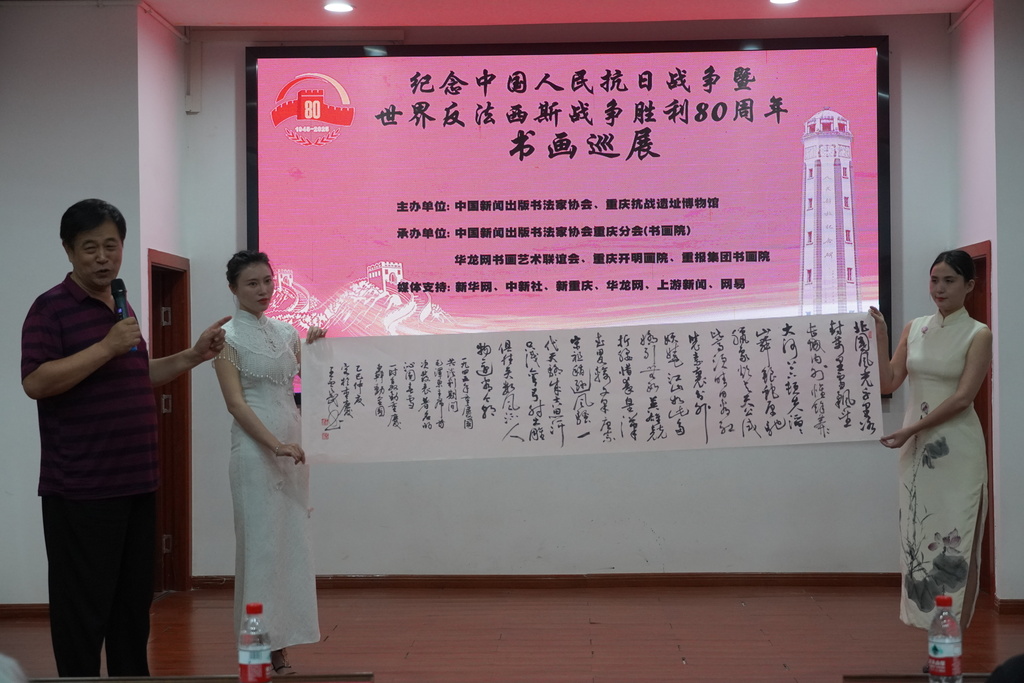 80
1945-2025
纪念中国人民抗日战争暨
世界反法西斯战争胜利80周年
书画巡展
主办单位: 中国新闻出版书法家协会、重庆抗战遗址博物馆
承办单位: 中国新闻出版书法家协会重庆分会(书画院)
华龙网书画艺术联谊会、重庆开明画院、重报集团书画院
媒体支持: 新华网、中新社、新重庆、华龙网、上游新闻、网易
北国风光千里冰
封万里雪飘望
长城内外惟余莽
大河上下顿失滔
山舞银蛇原驰
蜡象欲与天公试
比高须晴日看红
装素裹分外
妖娆江山如此多
娇引无数英雄竞
折腰惜秦皇汉
武略输文采唐
宗宋祖稍逊风骚一
代天骄成吉思汗
只识弯弓射大雕
俱往矣数风流人
物还看今朝
一九四五年重庆国
共谈判期间
毛泽东主席
沁园春雪